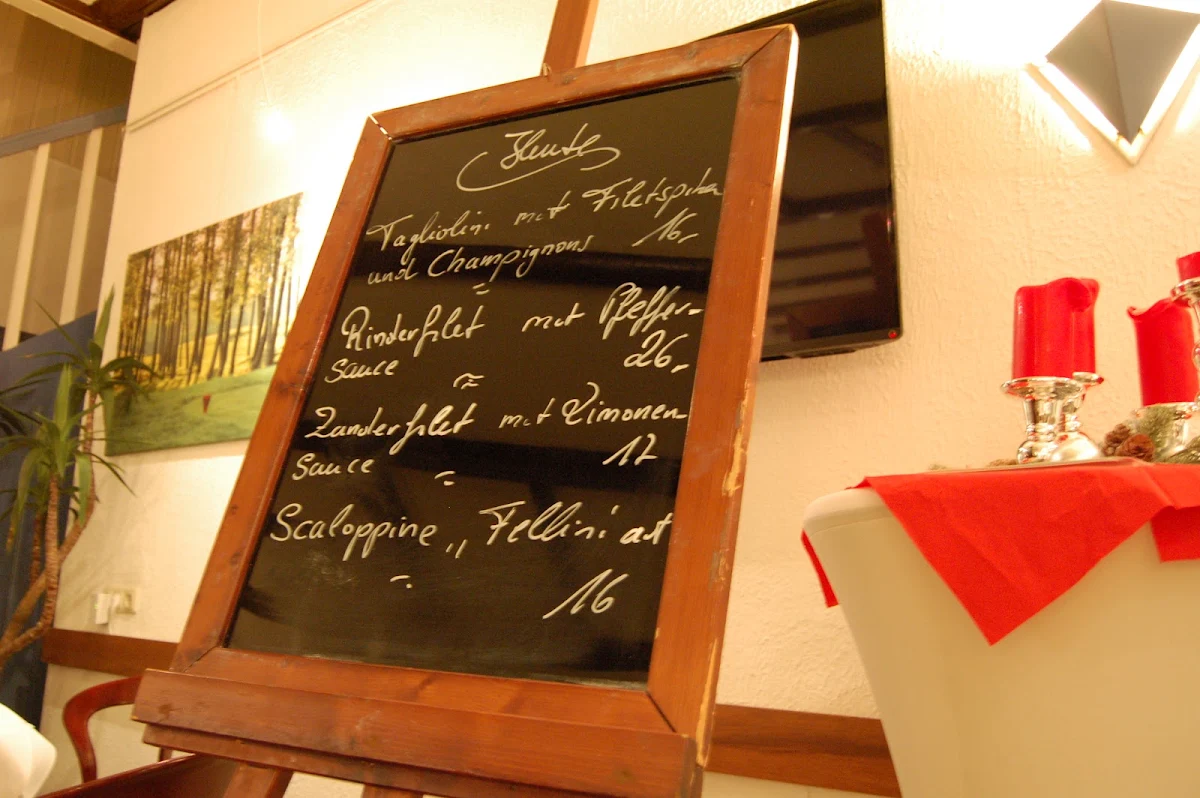 Heute
Tagliolini mit Filetspitzen
und Champignons 16,-
Rinderfilet mit Pfeffer-
sauce 26,-
Zanderfilet mit Limonen
sauce 17
Scaloppine „Fellini art
16